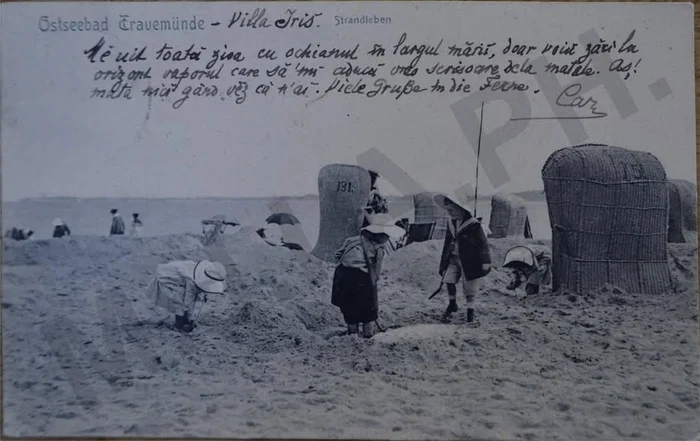 Ostseebad Travemünde - Villa Iris. Strandleben
Mě uit toată ziua cu ochianul în largul mării, doar voiu zări la
orizont vaporul care să 'mi aducă vre-o scrisoare dela matale. Aș!
mata nici gând văz că n'ai. Viele Grüße in die Ferne.
Car
131.